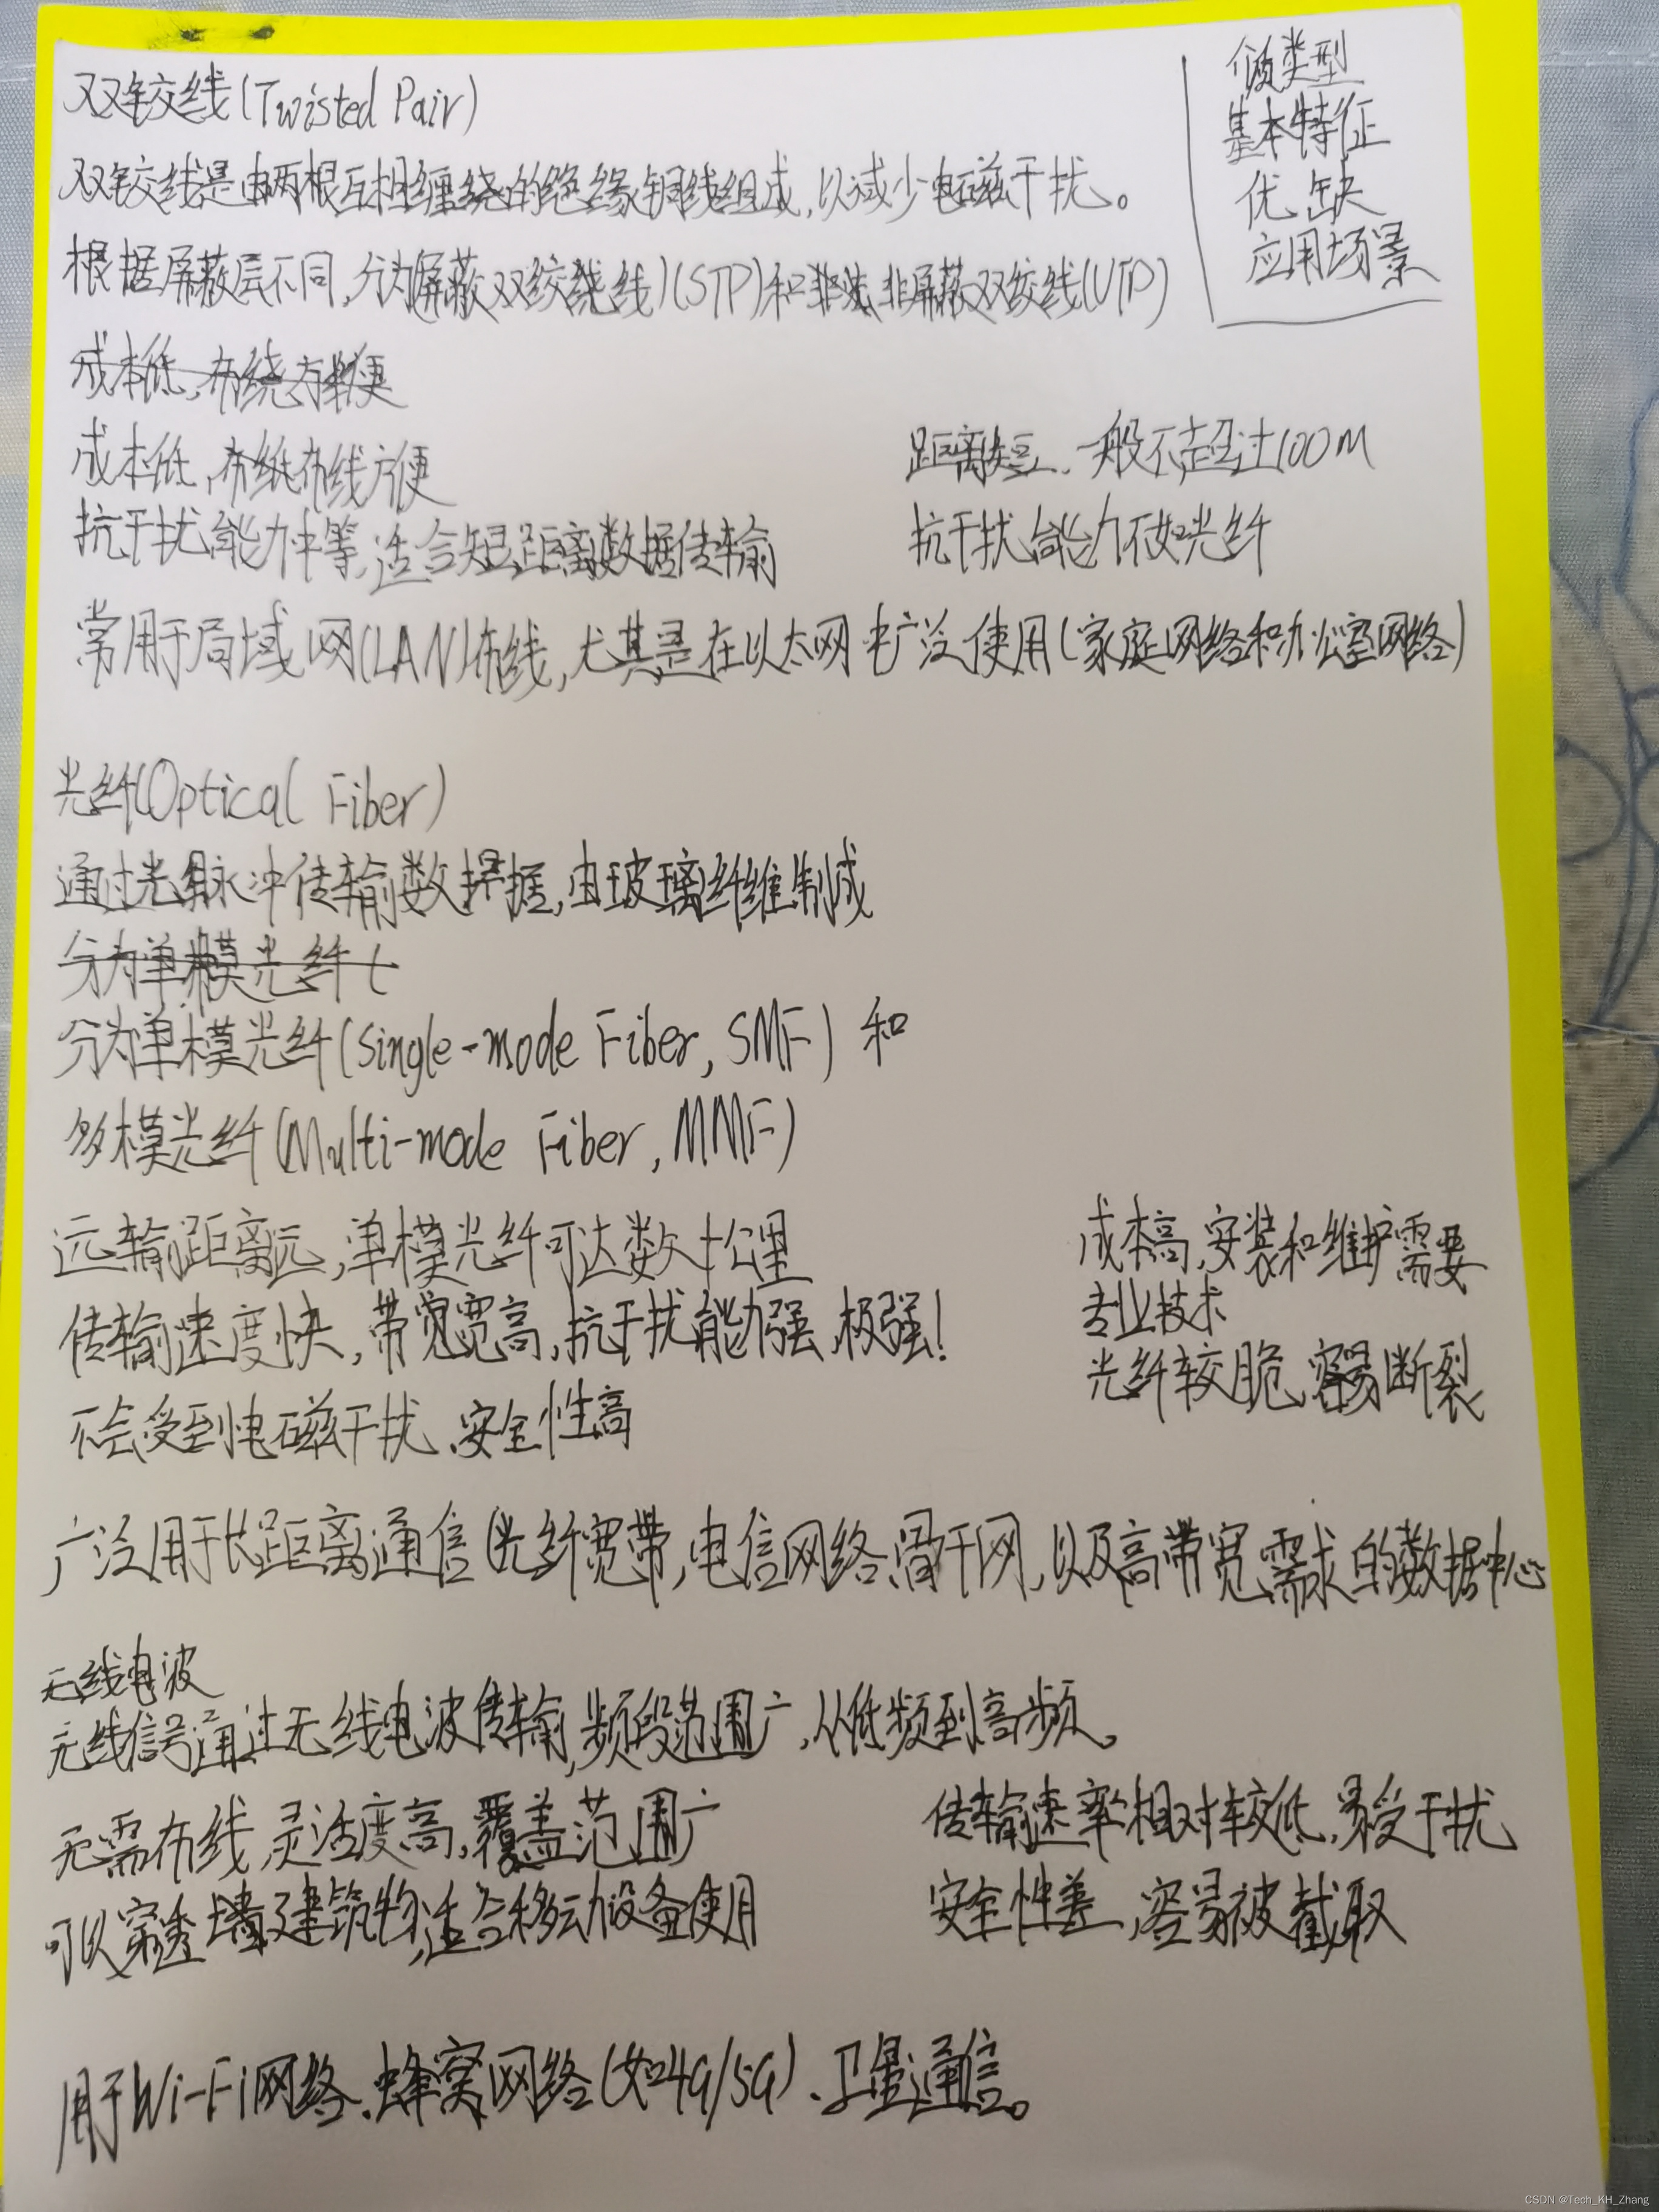 双绞线(Twisted Pair)
双绞线是由两根互相缠绕的绝缘铜线组成,以减少电磁干扰。
根据屏蔽层不同,分为屏蔽双绞线(STP)和非屏蔽双绞线(UTP)
类型
基本特征
优缺
应用场景
成本低,布线方便
成本低,布线方便
距离短、一般不超过100M
抗干扰能力中等,适合短距离数据传输
抗干扰能力不如光纤
常用于局域网(LAN)布线,尤其是在以太网中广泛使用(家庭网络和办公室网络)
光纤(Optical Fiber)
通过光脉冲传输数据,由玻璃纤维制成
分为单模光纤(
分为单模光纤(Single-mode Fiber, SMF) 和
多模光纤(Multi-mode Fiber, MMF)
远输距离远,单模光纤可达数十公里
传输速度快,带宽高,抗干扰能力强、极强!
不会受到电磁干扰、安全性高
成本高,安装和维护需要
专业技术
光纤较脆、容易断裂
广泛用于长距离通信(光纤宽带,电信网络、骨干网,以及高带宽需求的数据中心
无线电波
无线信号通过无线电波传输,频段范围广,从低频到高频。
无需布线,灵活度高,覆盖范围广
可以穿透墙建筑物,适合移动设备使用
传输速率相对较低,易受干扰
安全性差,容易被截取
用于Wi-Fi网络、蜂窝网络(如4G/5G)、卫星通信。
CSDN @Tech_KH_Zhang